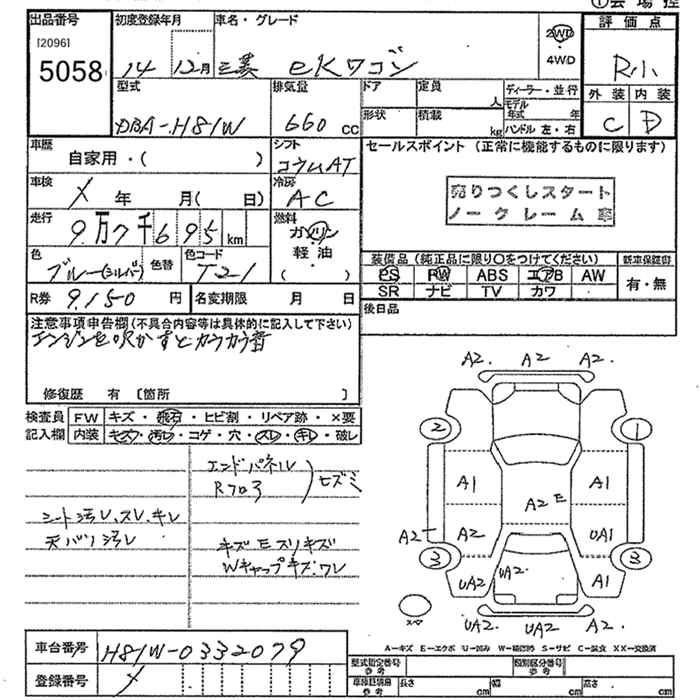 ①会場控
出品番号
[2096]
5058
初度登録年月
14 12月
車名・グレード
三菱 eKワゴン
2WD
・
4WD
評価点
R小
外装 内装
C D
型式
DBA-H81W
排気量
660 cc
ドア 定員 人
形状 積載 kg
ディーラー・並行
モデル年式 年
ハンドル 左・右
車歴
自家用・( )
シフト
コラムAT
セールスポイント (正常に機能するものに限ります)
売りつくしスタート
ノークレーム車
車検
X 年 月( 日)
冷房
AC
走行
9万7千695km
燃料
ガソリン
軽油
( )
色
ブルー(シルバ) 色替
色コード
T21
装備品(純正品に限り○をつけてください)
新車保証書
PS PW ABS エアB AW
SR ナビ TV カワ
有・無
R券 9,150円
名変期限 月 日
後日品
注意事項申告欄(不具合内容等は具体的に記入して下さい)
エンジンを吹かすとカラカラ音
修復歴 有 〔箇所 〕
検査員
記入欄
FW キズ・飛石・ヒビ割・リペア跡・×要
内装 キズ・汚レ・コゲ・穴・スレ・キレ・破レ
エンドパネル
Rフロ3
ヒズミ
シート汚レ、スレ、キレ
天バリ汚レ
キズ Eスリキズ
Wキャップキズ、ワレ
A2. A2 A2.
2 1
A1 A2 E A1
A2 A2 UA1
3 3
UA2 UA2 A1
スペ
UA2 UA2 A2.
A-キズ E-エクボ U-凹み W-補修跡 S-サビ C-腐食 XX-交換済
車台番号 H81W-0332079
登録番号 X
型式指定番号 参考
類別区分番号 参考
車検証諸元 参考 長さ cm 幅 cm 高さ cm